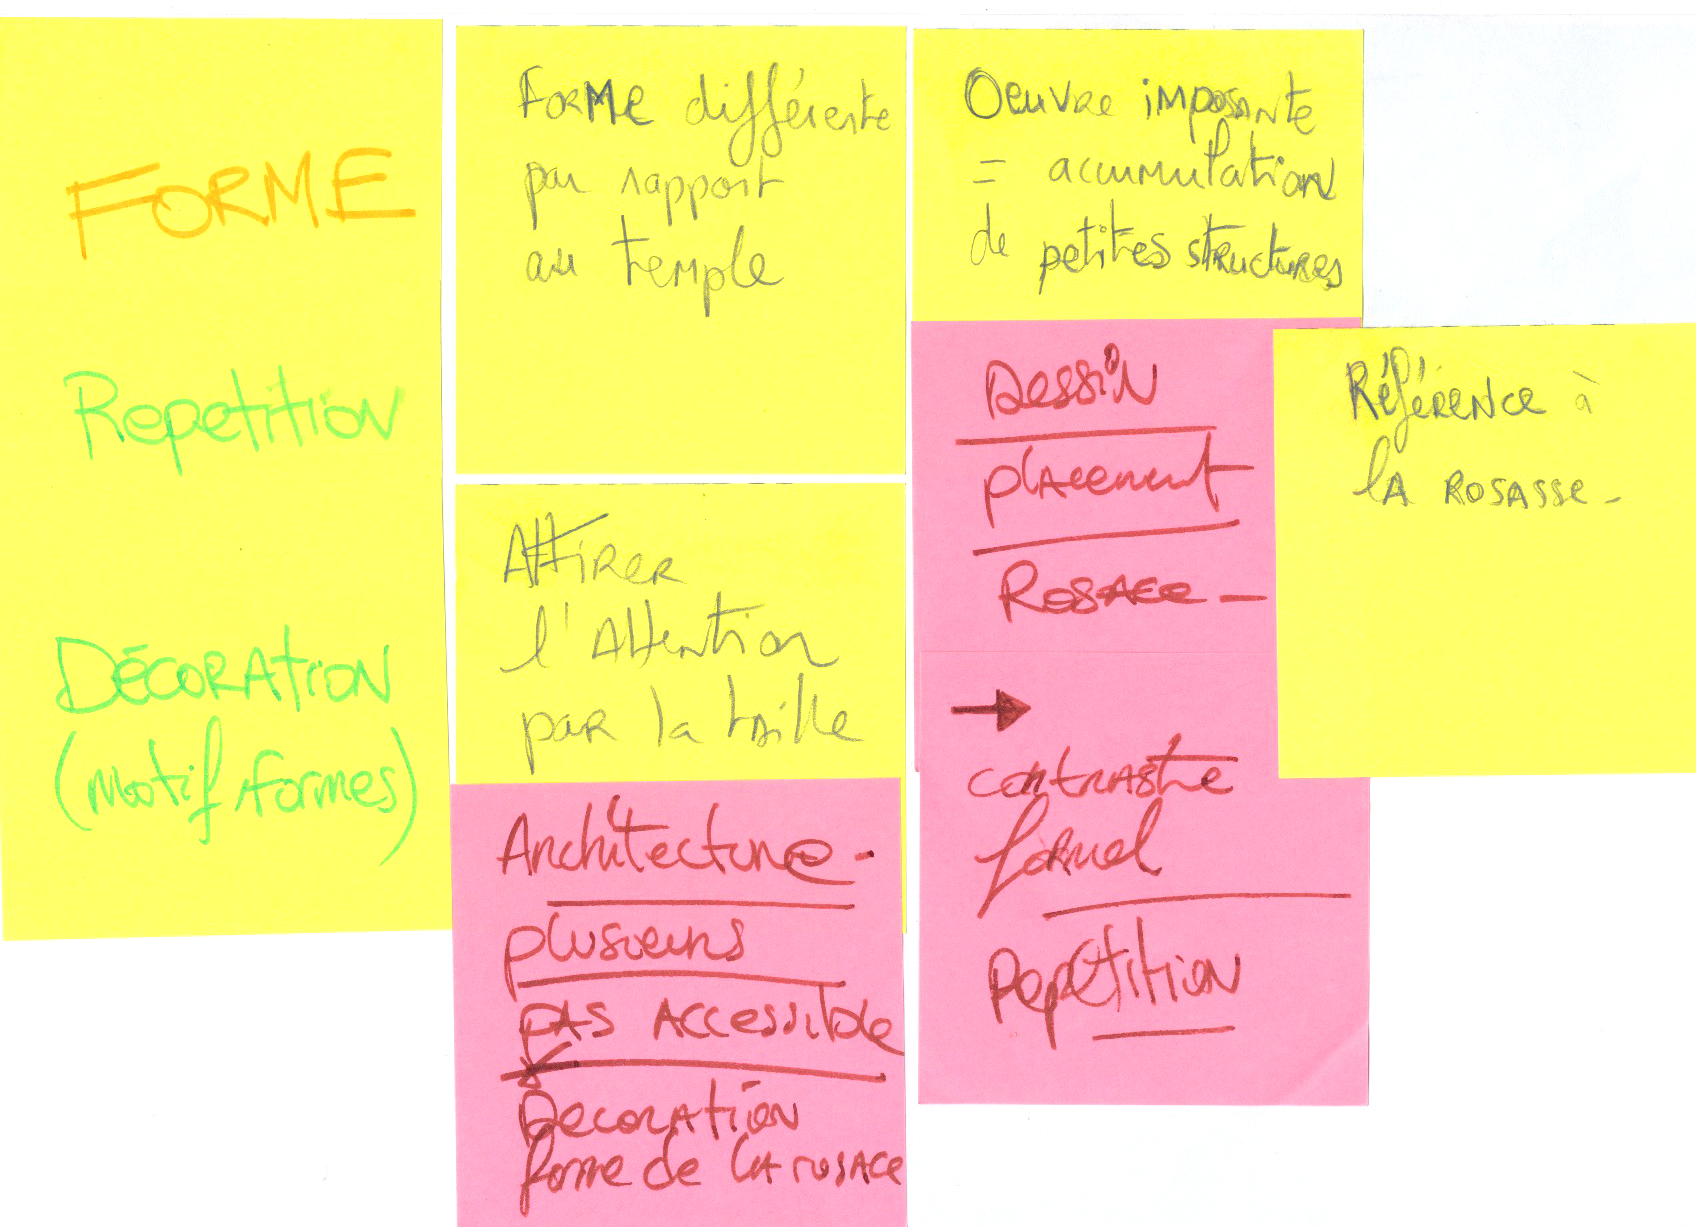 FORME
Repetition
DÉCORATION
(motif formes)
Forme différente
par rapport
au temple
Attirer
l'Attention
par la taille
Architecture -
plusieurs
pas accessible
Decoration
forme de la rosace
Oeuvre imposante
= accumulation
de petites structures
Dessin
placement
Rosace -
→
contraste
formel
Repetition
Référence à
la rosasse -